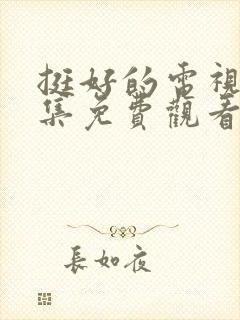 挺好的電視
集免費觀看
長如夜